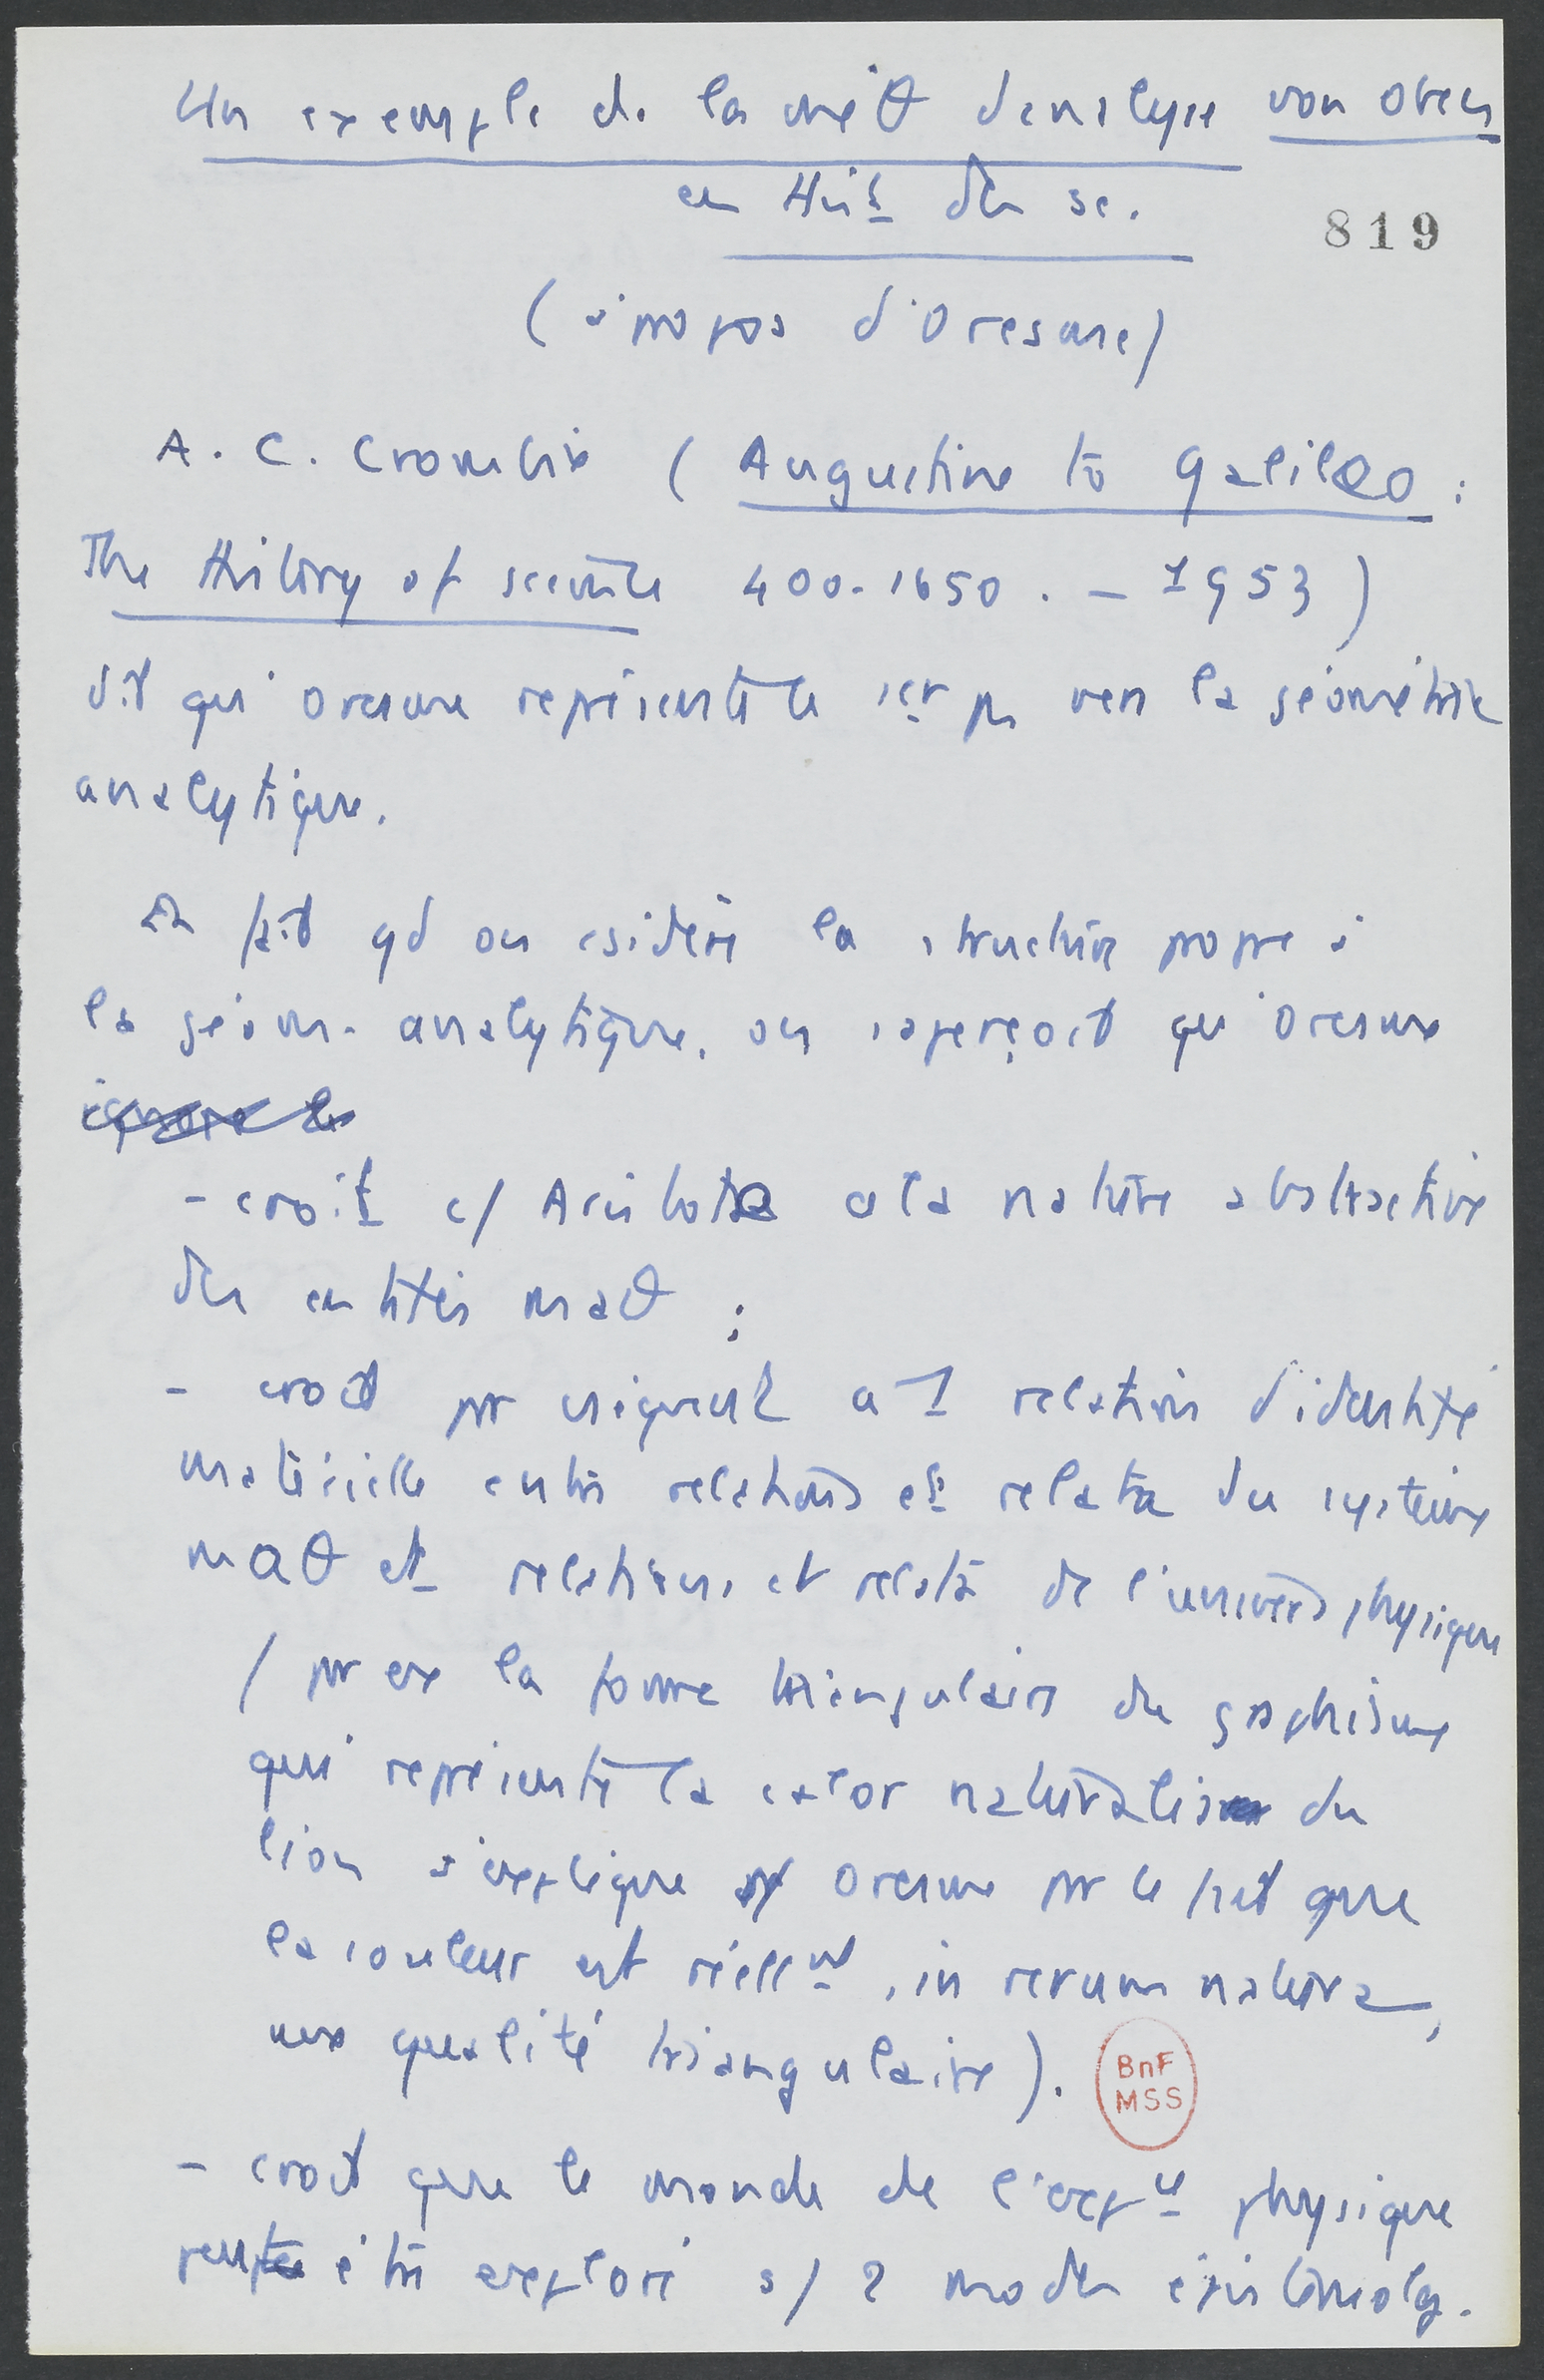 Un exemple de la méθ d'analyse von Oven
en Hist des sc.
819
(à propos d'Oresme)
A. C. Crombie (Augustine to Galileo :
The History of science 400-1650. – 1953)
dit qu'Oresme représente le 1er ps vers la géométrie
analytique.
En fait qd on csidère la structure propre à
la géom. analytique, on s'aperçoit qu'Oresme
ignore la
- croit c/ Aristote a la nature abstractive
des entités maθ ;
- croit pr uniquemt a 1 relation d'identité
matérielle entre relations et relata du système
maθ et relations et relata de l'univers physique
(pr ex la forme triangulaire du graphisme
qui représente la calor naturalis du
lion s'explique pr Oresme pr le fait que
la couleur est réellmt, in rerum natura,
une qualité triangulaire).
BnF
MSS
- croit que le monde de l'expce physique
peut être exploré s/ 2 modes épistémolog.